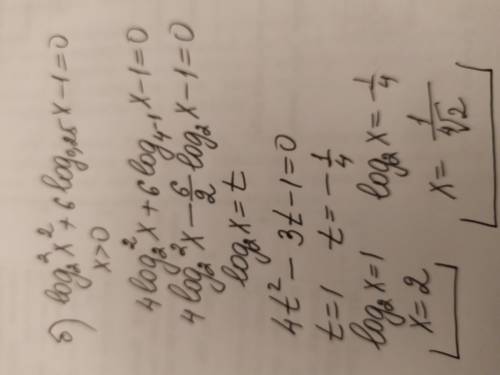 б) log₂²x² + 6log₀,₂₅x − 1 = 0
x > 0
4log₂²x + 6log₄₋₁x − 1 = 0
4log₂²x − 6/2 log₂x − 1 = 0
log₂x = t
4t² − 3t − 1 = 0
t = 1 t = −1/4
log₂x = 1 log₂x = −1/4
x = 2 x = 1/⁴√2